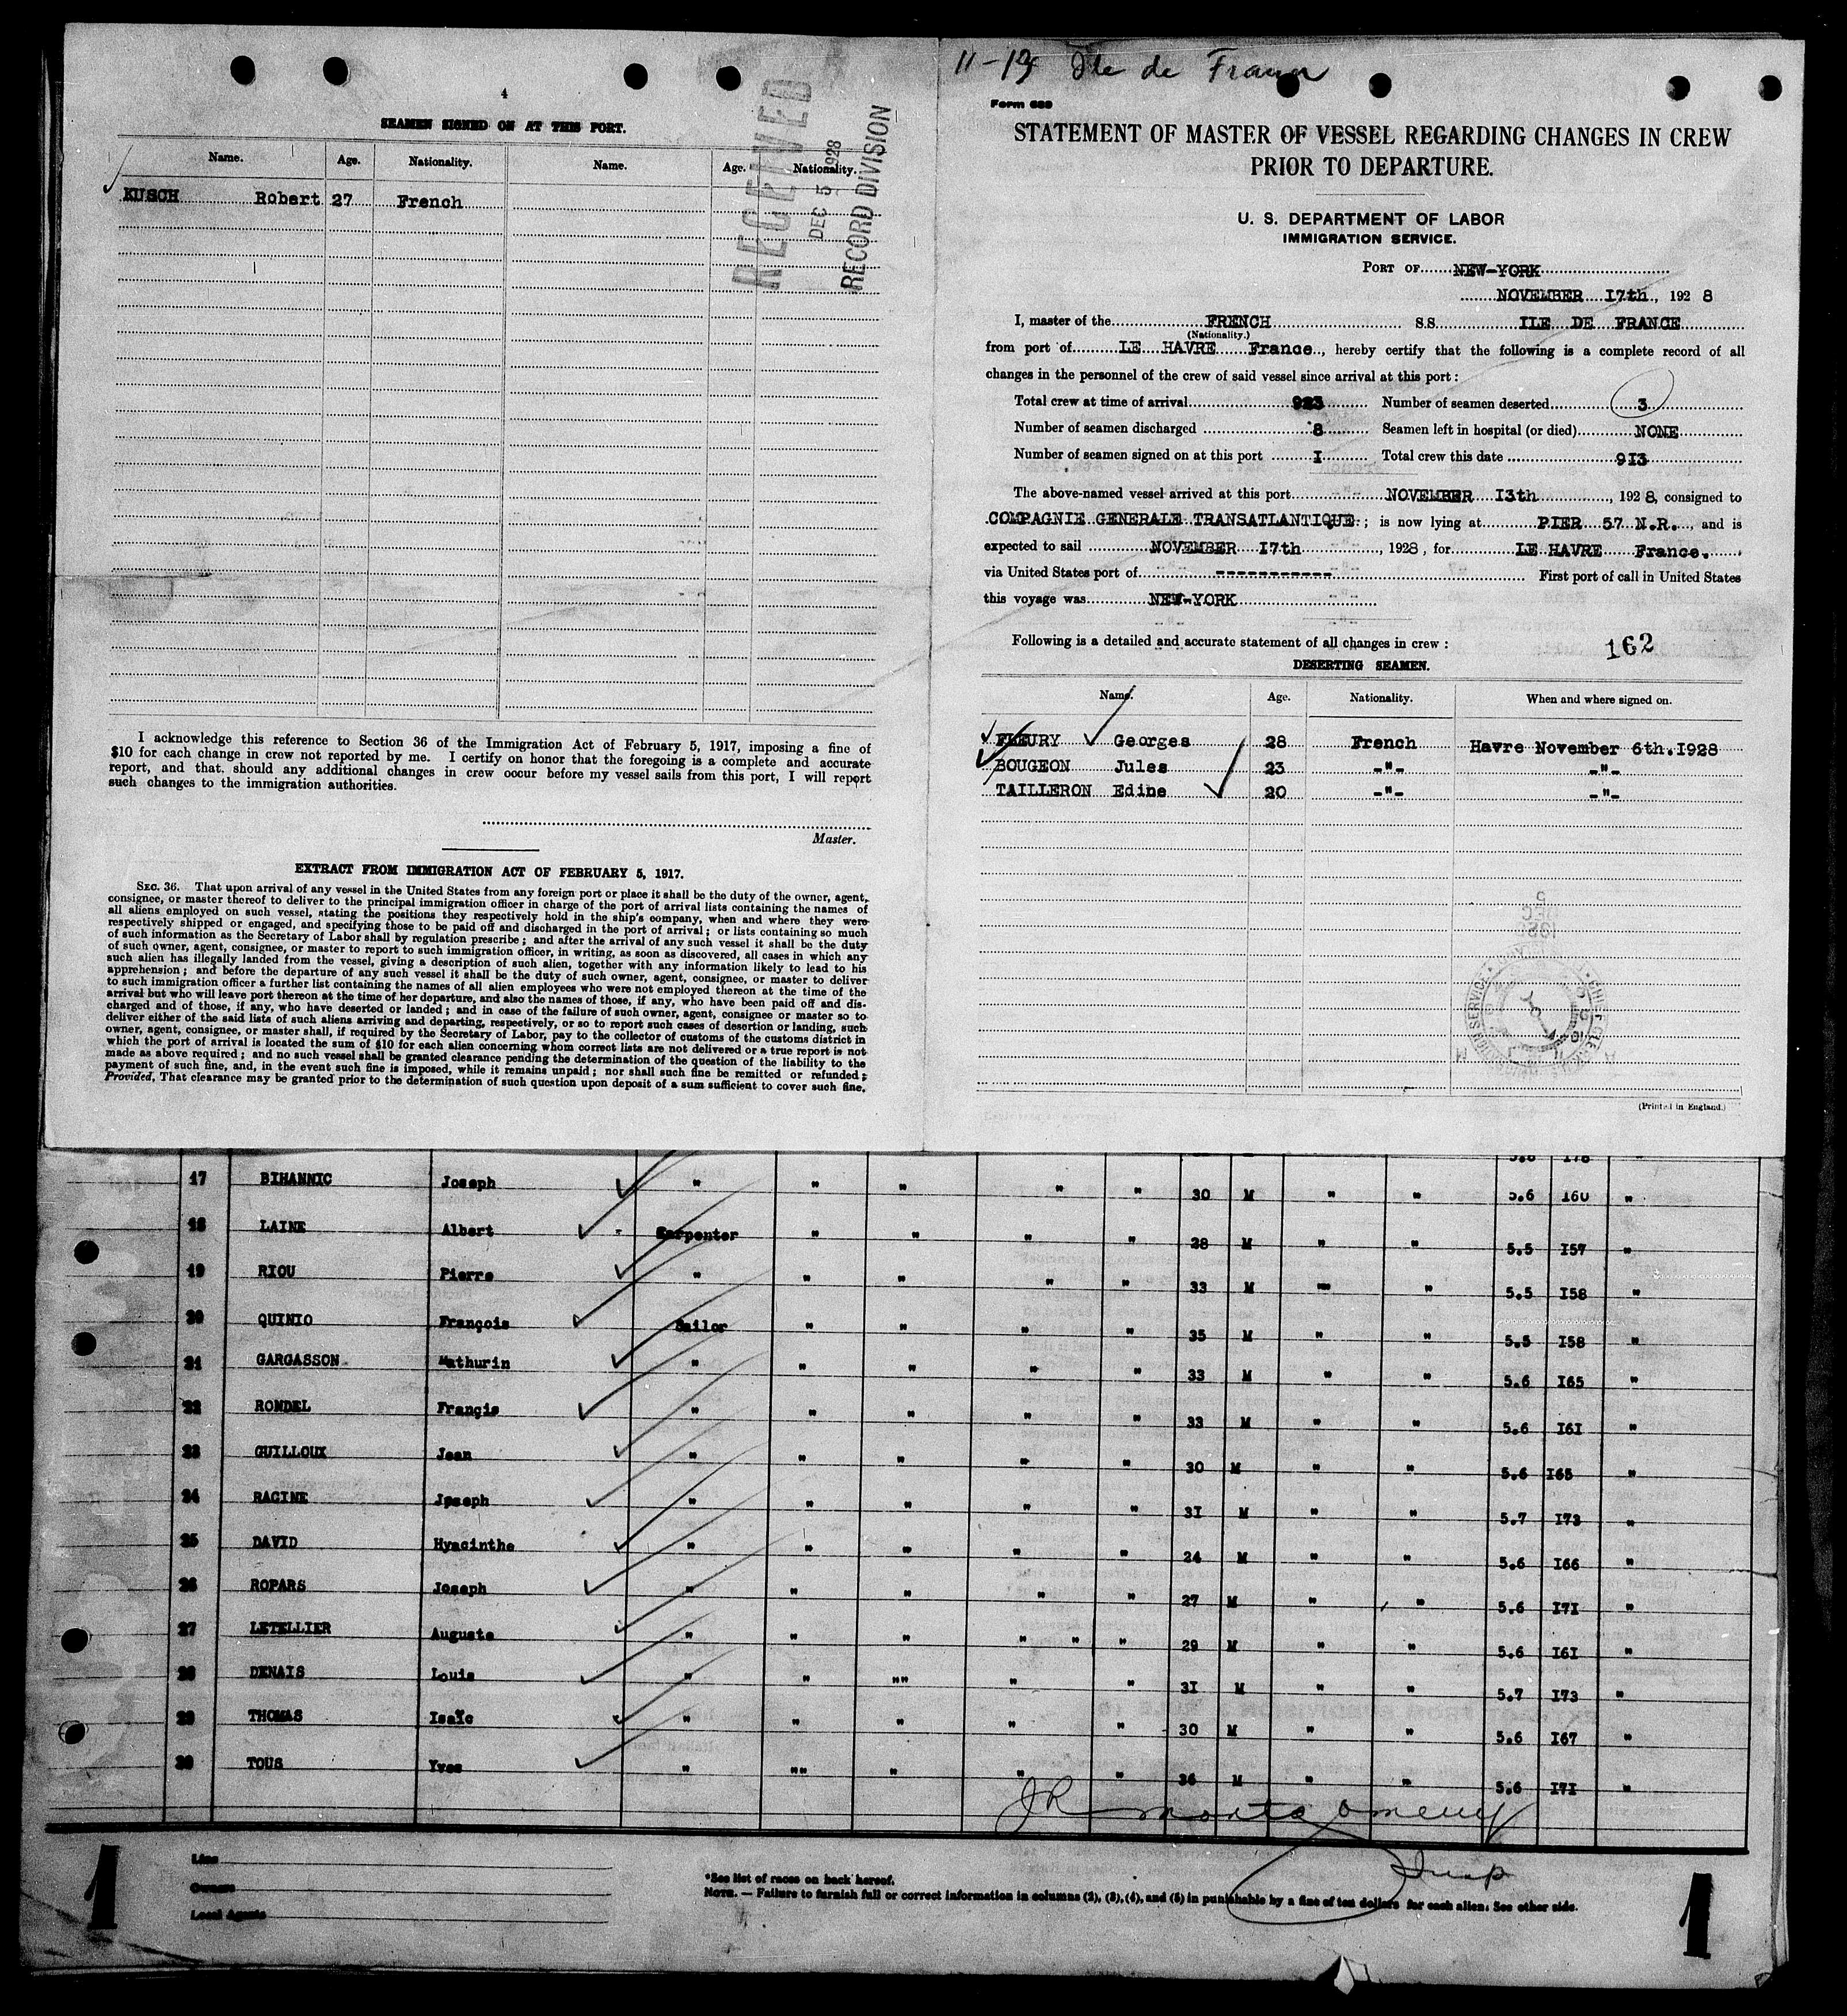 4
SEAMEN SIGNED ON AT THIS PORT.
Name. Age. Nationality. Name. Age. Nationality.
KUSCH Robert 27 French
RECEIVED
DEC 5 1928
RECORD DIVISION
I acknowledge this reference to Section 36 of the Immigration Act of February 5, 1917, imposing a fine of
$10 for each change in crew not reported by me. I certify on honor that the foregoing is a complete and accurate
report, and that should any additional changes in crew occur before my vessel sails from this port, I will report
such changes to the immigration authorities.
Master.
EXTRACT FROM IMMIGRATION ACT OF FEBRUARY 5, 1917.
SEC. 36. That upon arrival of any vessel in the United States from any foreign port or place it shall be the duty of the owner, agent,
consignee, or master thereof to deliver to the principal immigration officer in charge of the port of arrival lists containing the names of
all aliens employed on such vessel, stating the positions they respectively hold in the ship's company, when and where they were
respectively shipped or engaged, and specifying those to be paid off and discharged in the port of arrival; or lists containing so much
of such information as the Secretary of Labor shall by regulation prescribe; and after the arrival of any such vessel it shall be the duty
of such owner, agent, consignee, or master to report to such immigration officer, in writing, as soon as discovered, all cases in which any
such alien has illegally landed from the vessel, giving a description of such alien, together with any information likely to lead to his
apprehension; and before the departure of any such vessel it shall be the duty of such owner, agent, consignee, or master to deliver
to such immigration officer a further list containing the names of all alien employees who were not employed thereon at the time of the
arrival but who will leave port thereon at the time of her departure, and also the names of those, if any, who have been paid off and dis-
charged and of those, if any, who have deserted or landed; and in case of the failure of such owner, agent, consignee or master so to
deliver either of the said lists of such aliens arriving and departing, respectively, or so to report such cases of desertion or landing, such
owner, agent, consignee, or master shall, if required by the Secretary of Labor, pay to the collector of customs of the customs district in
which the port of arrival is located the sum of $10 for each alien concerning whom correct lists are not delivered or a true report is not
made as above required; and no such vessel shall be granted clearance pending the determination of the question of the liability to the
payment of such fine, and, in the event such fine is imposed, while it remains unpaid; nor shall such fine be remitted or refunded;
Provided, That clearance may be granted prior to the determination of such question upon deposit of a sum sufficient to cover such fine.
11-13 Ile de France
Form 689
STATEMENT OF MASTER OF VESSEL REGARDING CHANGES IN CREW
PRIOR TO DEPARTURE.
U. S. DEPARTMENT OF LABOR
IMMIGRATION SERVICE.
PORT OF NEW-YORK
NOVEMBER I7th, 1928
I, master of the FRENCH S.S. ILE DE FRANCE
(Nationality.)
from port of LE HAVRE France, hereby certify that the following is a complete record of all
changes in the personnel of the crew of said vessel since arrival at this port:
Total crew at time of arrival 923 Number of seamen deserted 3
Number of seamen discharged 8 Seamen left in hospital (or died) NONE
Number of seamen signed on at this port I Total crew this date 9I3
The above-named vessel arrived at this port NOVEMBER I3th, 1928, consigned to
COMPAGNIE GENERALE TRANSATLANTIQUE; is now lying at PIER 57 N.R., and is
expected to sail NOVEMBER I7th, 1928, for LE HAVRE France.
via United States port of ----------- First port of call in United States
this voyage was NEW-YORK
Following is a detailed and accurate statement of all changes in crew:
162
DESERTING SEAMEN.
Name. Age. Nationality. When and where signed on.
FLEURY Georges 28 French Havre November 6th.I928
BOUGEON Jules 23 -"- -"-
TAILLERON Edine 20 -"- -"-
(Printed in England.)
17 BIHANNIC Joseph " " " " " 30 M " " 5.6 I60 "
18 LAINE Albert Carpenter " " " " 28 M " " 5.5 I57 "
19 RIOU Pierre " " " " " 33 M " " 5.5 I58 "
20 QUINIO François Sailor " " " " 35 M " " 5.5 I58 "
21 GARGASSON Mathurin " " " " " 33 M " " 5.6 I65 "
22 RONDEL Françis " " " " " 33 M " " 5.6 I6I "
23 GUILLOUX Jean " " " " " 30 M " " 5.6 I65 "
24 RACINE Joseph " " " " " 3I M " " 5.7 I73 "
25 DAVID Hyacinthe " " " " " 24 M " " 5.6 I66 "
26 ROPARS Joseph " " " " " 27 M " " 5.6 I7I "
27 LETELLIER Auguste " " " " " " 29 M " " 5.6 I6I "
28 DENAIS Louis " " "" " " 3I M " " 5.7 I73 "
29 THOMAS Isaïc " " " " " 30 M " " 5.6 I67 "
30 TOUS Yves " "" " " " 36 M " " 5.6 I7I "
JR Montgomery
Insp
Line
Owners
Local Agents
*See list of races on back hereof.
NOTE. — Failure to furnish full or correct information in columns (2), (3), (4), and (5) in punishable by a fine of ten dollars for each alien. See other side.
1 1